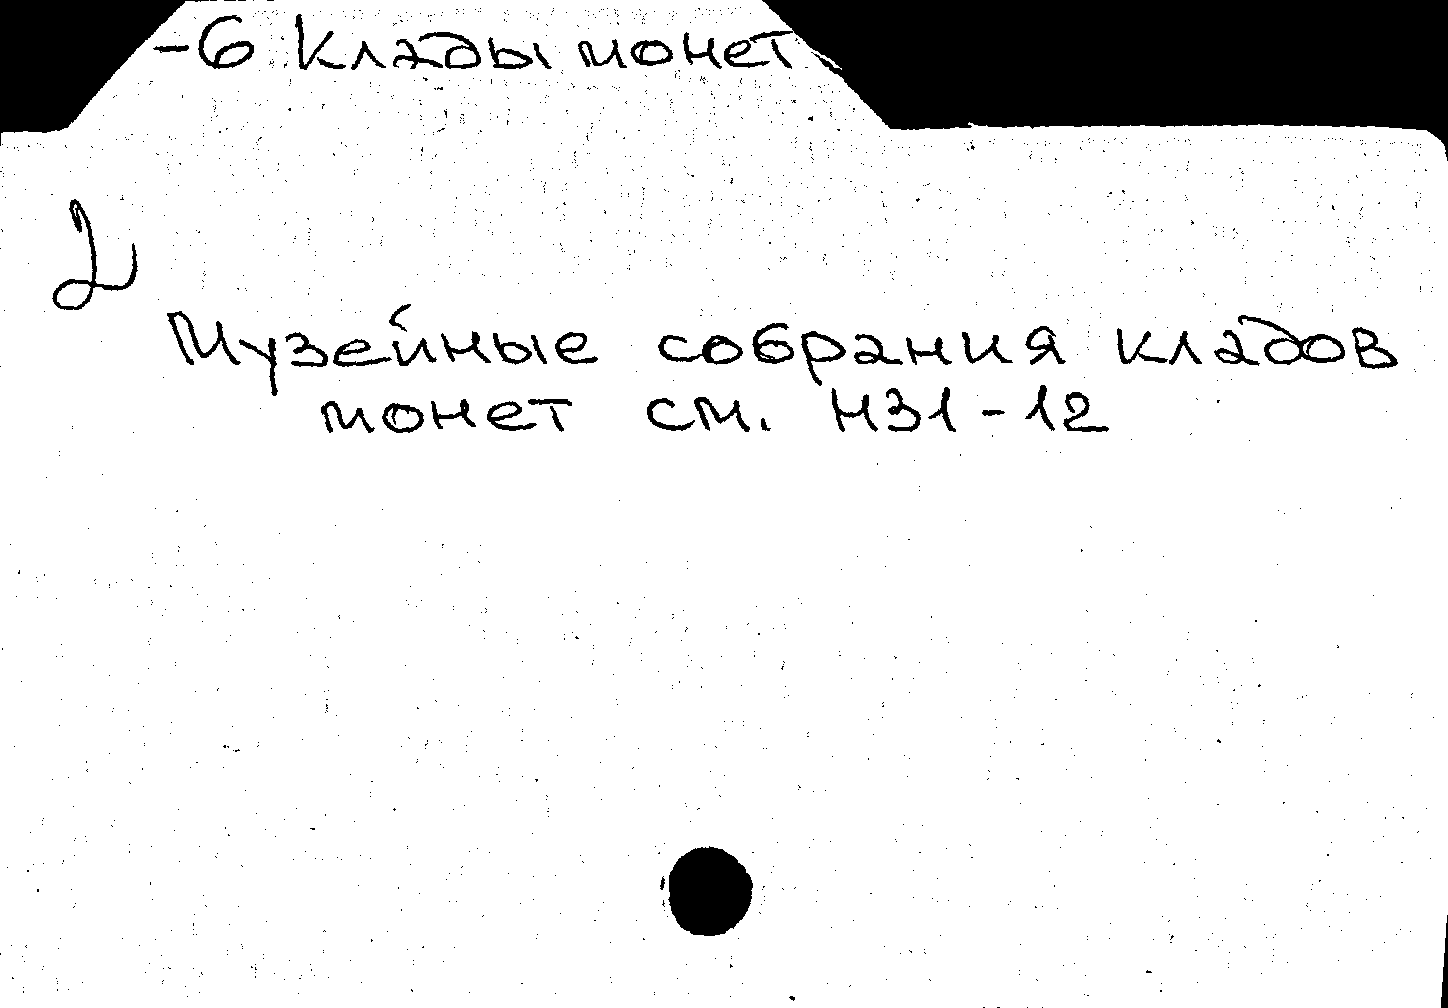 -6 Клады монет
2
Музейные собрания кладов
монет см. Н31-12